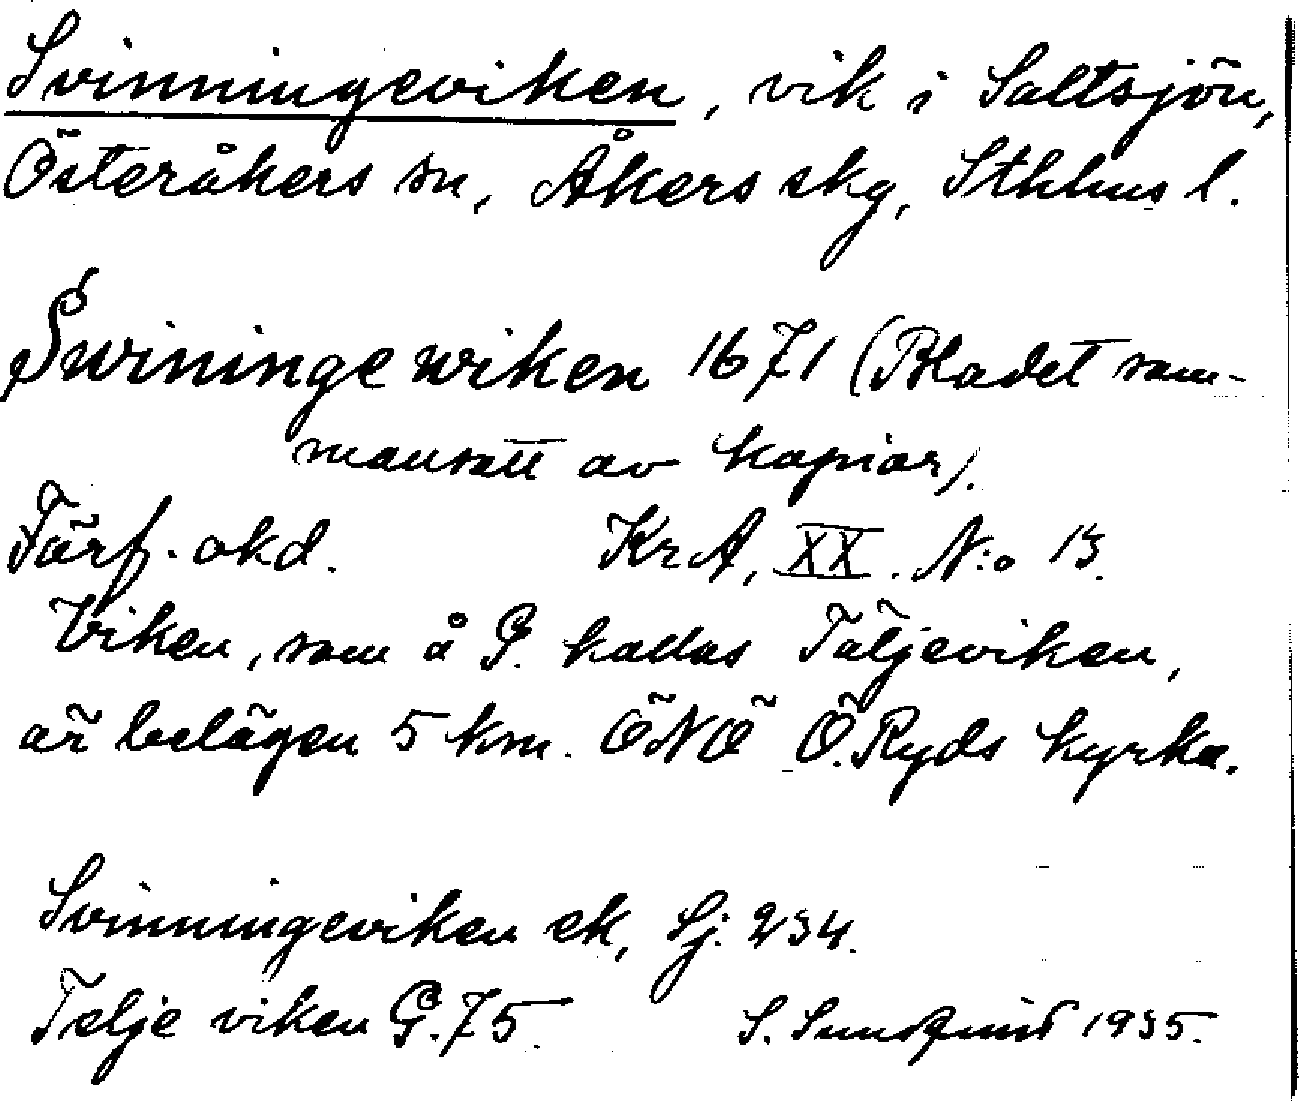 Svinningeviken, vik i Saltsjön,
Österåkers sn, Åkers skg, Sthlms l.
Swininge wiken 1671 (Bladet sam-
mansatt av kopior).
Förf. okd. KrA, XX. N:o 13.
Viken, som å G. kallas Täljeviken,
är belägen 5 km. ÖNÖ Ö. Ryds kyrka.
Svinningeviken ek, Sj. 234.
Telje viken G. 75 S. Sundquist 1935.